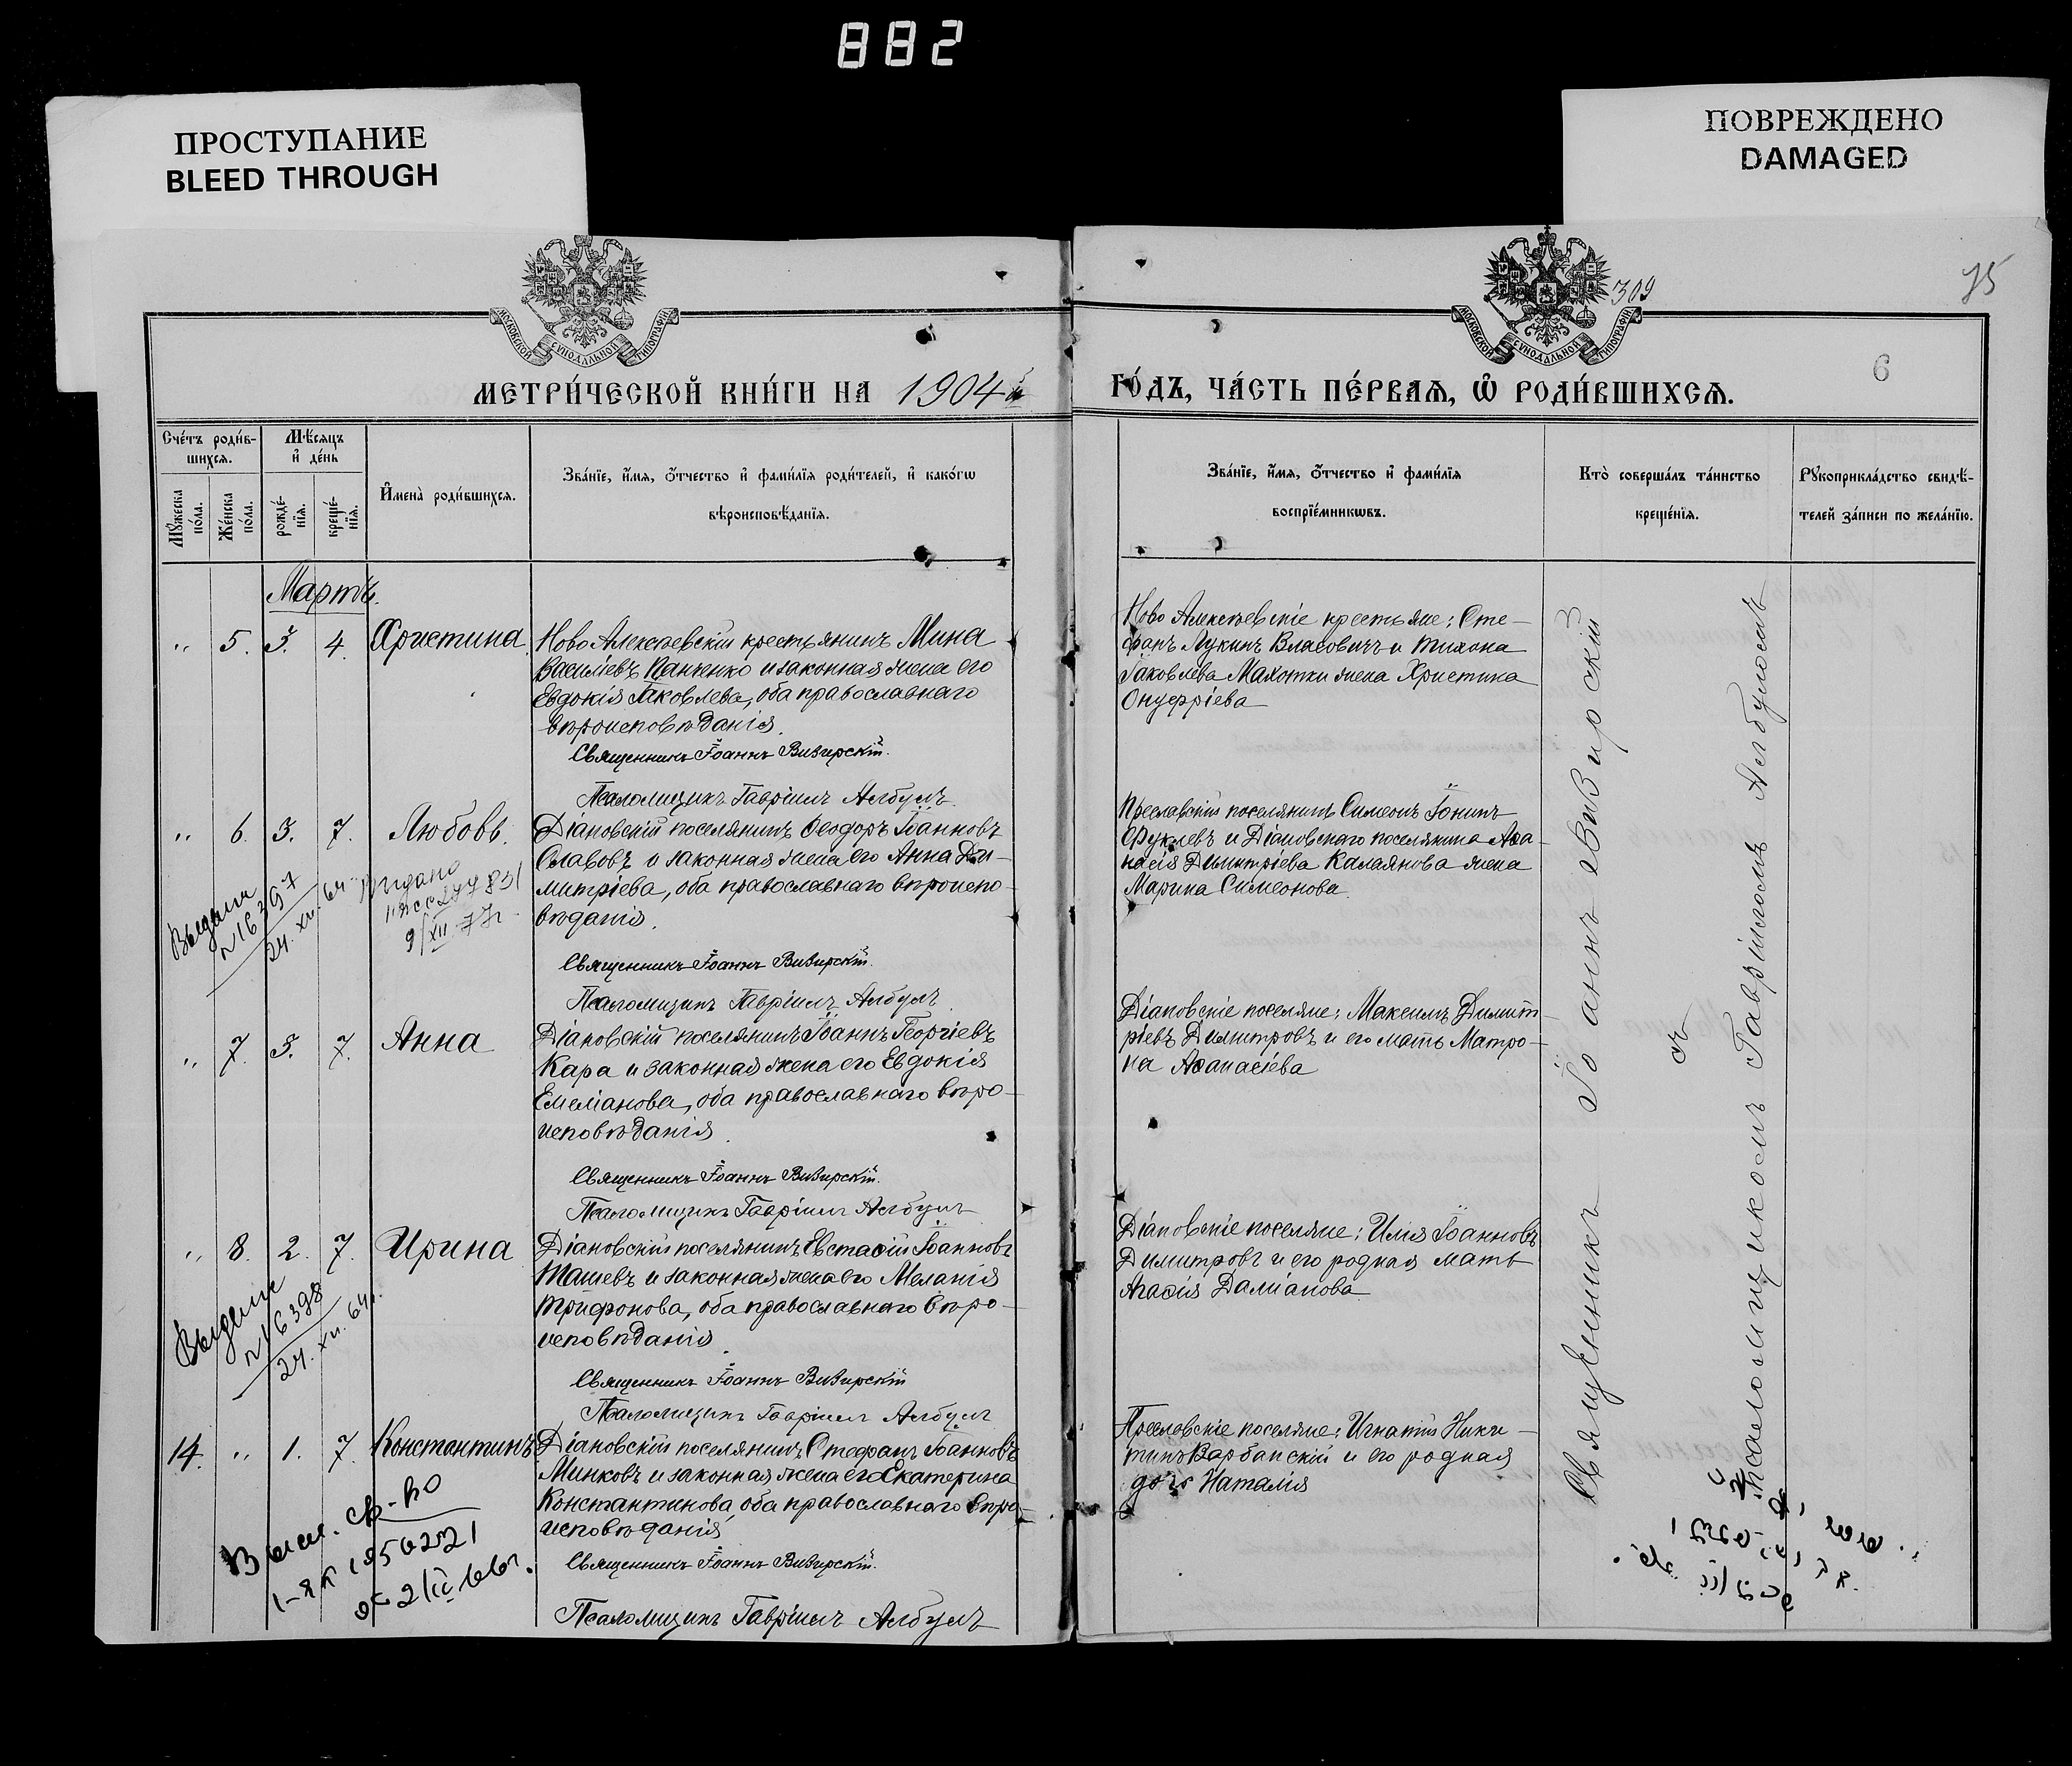 882
ПРОСТУПАНИЕ
BLEED THROUGH
ПОВРЕЖДЕНО
DAMAGED
МОСКОВСКОЙ СѴНОДАЛЬНОЙ ТИПОГРАФІИ
МОСКОВСКОЙ СѴНОДАЛЬНОЙ ТИПОГРАФІИ
309
75
6
МЕТРИ́ЧЕСКОЙ КНИ́ГИ НА 1904й
ГО́ДЪ, ЧА́СТЬ ПЕ́РВАѦ, Ѡ РОДИ́ВШИХСѦ.
Сче́тъ роди́в-
шихсѧ.
Мꙋ́жеска по́ла.
Же́нска по́ла.
Мѣ́сѧцъ
и҆ де́нь
рожде́-
нїѧ.
креще́-
нїѧ.
И҆мена̀ роди́вшихсѧ.
Зва́нїе, и҆́мѧ, о҆́тчество и҆ фами́лїѧ роди́телей, и҆ како́гѡ
вѣроисповѣ́данїѧ.
Зва́нїе, и҆́мѧ, о҆́тчество и҆ фами́лїѧ
воспрїе́мникѡвъ.
Кто̀ соверша́лъ та́инство
креще́нїѧ.
Рꙋкоприкла́дство свидѣ́-
телей за́писи по жела́нїю.
Мартъ.
" 5. 3. 4. Христина
Ново Алексѣевскій крестьянинъ Мина
Василіевъ Панченко и законная жена его
Евдокія Іаковлева, оба православнаго
вѣроисповѣданія.
Священникъ Іоаннъ Визирскій.
Псаломщикъ Гавріилъ Албулъ
Ново Алексѣевскіе крестьяне: Сте-
фанъ Лукинъ Власовичъ и Тихона
Іаковлева Махотки жена Христина
Онуфріева
" 6. 3. 7. Любовь.
Діановскій поселянинъ Ѳеодоръ Іоанновъ
Славовъ и законная жена его Анна Ди-
митріева, оба православнаго вѣроиспо-
вѣданія.
Священникъ Іоаннъ Визирскій.
Псаломщикъ Гавріилъ Албулъ
Преславскій поселянинъ Симеонъ Іонинъ
и Діановскаго поселянина Аѳа-
насія Димитріева Калаянова жена
Марина Симеонова
n 16397
24. XII. 64
831
9/XII 77г
" 7. 5. 7. Анна
Діановскій поселянинъ Іоаннъ Георгіевъ
Кара и законная жена его Евдокія
Емеліанова, оба православнаго вѣро-
исповѣданія.
Священникъ Іоаннъ Визирскій.
Псаломщикъ Гавріилъ Албулъ
Діановскіе поселяне: Максимъ Димит-
ріевъ Димитровъ и его мать Матро-
на Аѳанасіева
" 8. 2. 7. Ирина
Діановскій поселянинъ Евстафій Іоанновъ
Ташевъ и законная жена его Меланія
Трифонова, оба православнаго вѣро-
исповѣданія.
Священникъ Іоаннъ Визирскій
Псаломщикъ Гавріилъ Албулъ
Діановскіе поселяне: Илія Іоанновъ
Димитровъ и его родная мать
Агафія Даміанова
n 16398
24. XII. 64г.
14. " 1. 7. Константинъ
Діановскій поселянинъ Стефанъ Іоанновъ
Минковъ и законная жена его Екатерина
Константинова, оба православнаго вѣро-
исповѣданія
Священникъ Іоаннъ Визирскій.
Псаломщикъ Гавріилъ Албулъ
Преславскіе поселяне: Игнатій Ники-
тинъ Варбанскій и его родная
дочь Наталія
св-во
1-ЯП 1956221
от 2/IV 66г.
Священникъ Іоаннъ Визирскій
съ
Псаломщикомъ Гавріиломъ Албуломъ